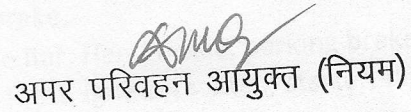 अपर परिवहन आयुक्त (नियम)